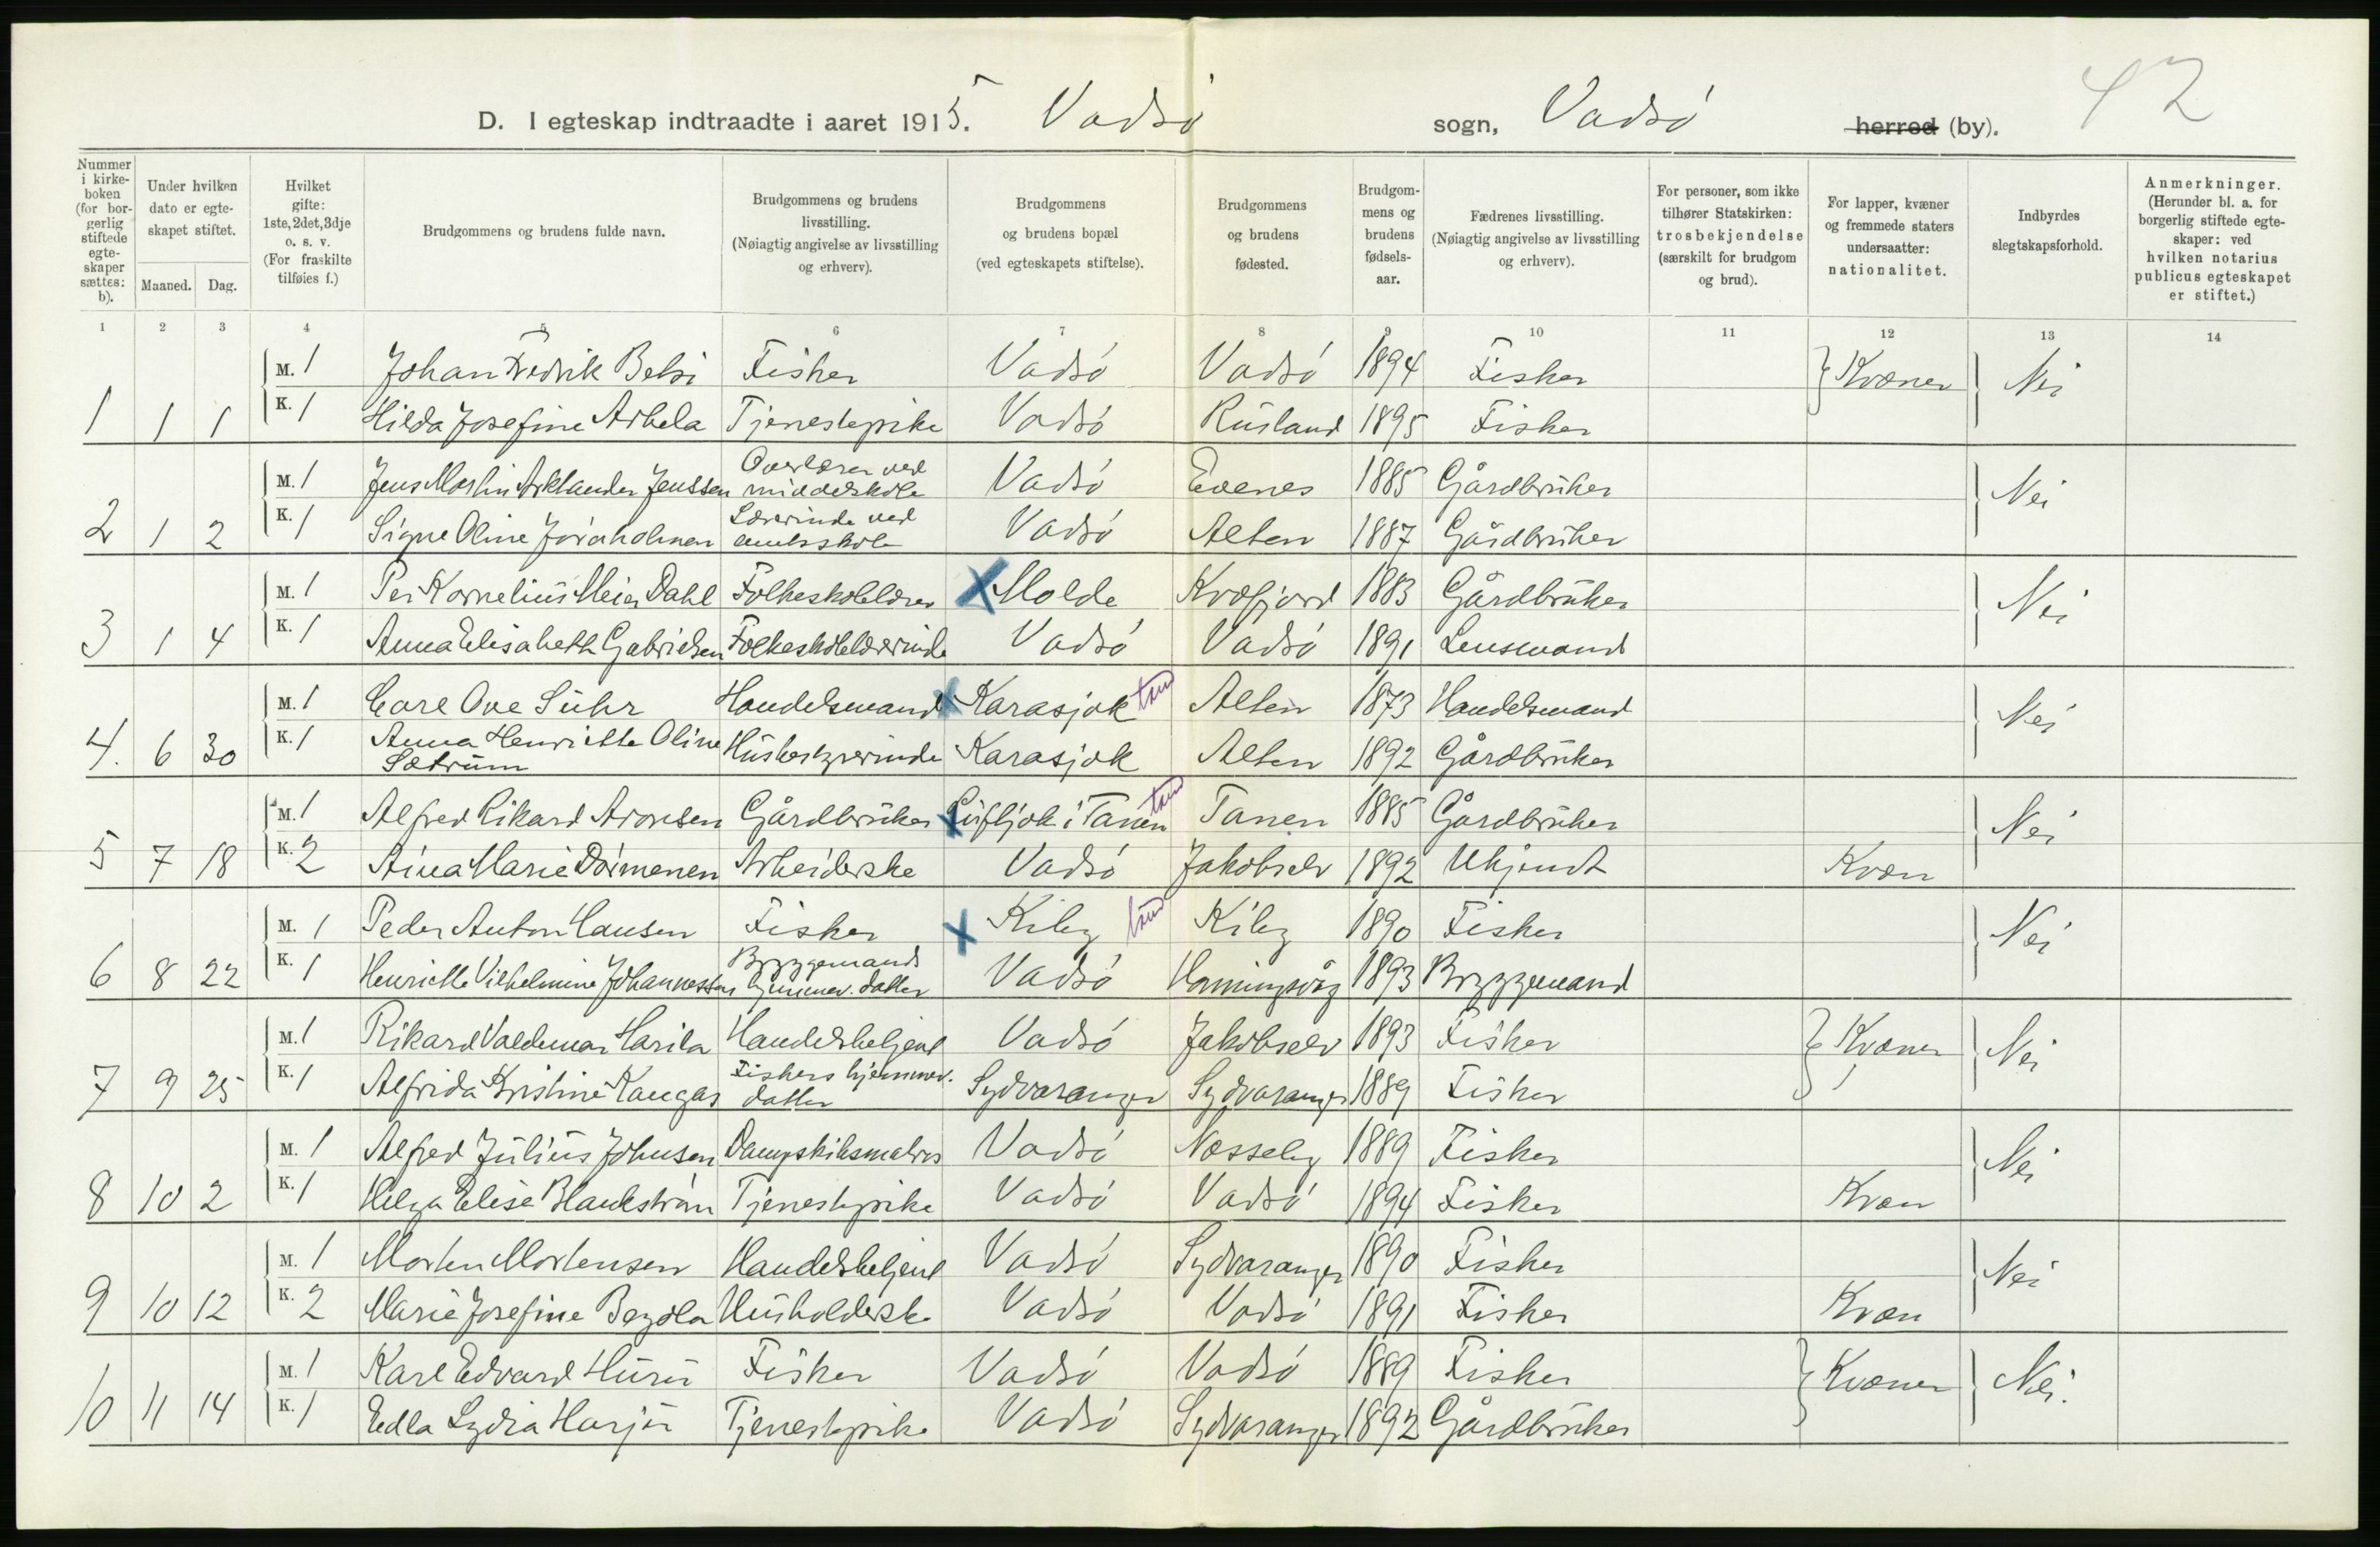 42
D. I egteskap indtraadte i aaret 1915. Vadsö sogn, Vadsö herred (by).
Nummer i kirkeboken (for borgerlig stiftede egteskaper sættes: b).
Under hvilken dato er egteskapet stiftet.
Maaned. Dag.
Hvilket gifte: 1ste, 2det, 3dje o. s. v. (For fraskilte tilføies f.)
Brudgommens og brudens fulde navn.
Brudgommens og brudens livsstilling. (Nøiagtig angivelse av livsstilling og erhverv).
Brudgommens og brudens bopæl (ved egteskapets stiftelse).
Brudgommens og brudens fødested.
Brudgommens og brudens fødselsaar.
Fædrenes livsstilling. (Nøiagtig angivelse av livsstilling og erhverv).
For personer, som ikke tilhører Statskirken: trosbekjendelse (særskilt for brudgom og brud).
For lapper, kvæner og fremmede staters undersaatter: nationalitet.
Indbyrdes slegtskapsforhold.
Anmerkninger. (Herunder bl. a. for borgerlig stiftede egteskaper: ved hvilken notarius publicus egteskapet er stiftet.)
1 2 3 4 5 6 7 8 9 10 11 12 13 14
M. 1 Johan Fredrik Betsi Fisker Vadsö Vadsö 1894 Fisker Kvæner Nei
1 1 1 K. 1 Hilda Josefine Arbela Tjenestepike Vadsö Rusland 1895 Fisker
M. 1 Jens Martin Arklander Jenssen Overlærer ved middelskole Vadsö Evenes 1885 Gårdbruker Nei
2 1 2 K. 1 Signe Oline Lærerinde ved amtsskole Vadsö Alten 1887 Gårdbruker
M. 1 Per Kornelius Meier Dahl Folkeskolelærer X Molde Kvæfjord 1883 Gårdbruker Nei
3 1 4 K. 1 Anna Elisabeth Gabrielsen Folkeskolelærerinde Vadsö Vadsö 1891 Lensmand
M. 1 Carl Ove Suhr Handelsmand X Karasjok Alten 1873 Handelsmand Nei
4. 6 30 K. 1 Anna Henriette Oline Sætrum Husbestyrerinde Karasjok Alten 1892 Gårdbruker
M. 1 Alfred Rikard Aronsen Gårdbruker X i Tanen Tanen 1885 Gårdbruker Nei
5 7 18 K. 2 Aina Marie Dormenen Arbeiderske Vadsö Jakobselv 1892 Ukjendt Kvæn
M. 1 Peder Anton Hansen Fisker X Kiby Kiby 1890 Fisker Nei
6 8 22 K. 1 Henriette Vilhelmine Johannessen Bryggemands hjemmev. datter Vadsö Honningsvåg 1893 Bryggemand
M. 1 Rikard Valdemar Harila Handelsbetjent Vadsö Jakobselv 1893 Fisker Kvæner Nei
7 9 25 K. 1 Alfrida Kristine Kangas Fiskers hjemmev. datter Sydvaranger Sydvaranger 1889 Fisker
M. 1 Alfred Julius Johnsen Dampskibsmatros Vadsö Næsseby 1889 Fisker Nei
8 10 2 K. 1 Helga Elise Blankström Tjenestepike Vadsö Vadsö 1894 Fisker Kvæn
M. 1 Morten Mortensen Handelsbetjent Vadsö Sydvaranger 1890 Fisker Nei
9 10 12 K. 2 Marie Josefine Husholderske Vadsö Vadsö 1891 Fisker Kvæn
M. 1 Karl Edvard Huru Fisker Vadsö Vadsö 1889 Fisker Kvæner Nei.
10 11 14 K. 1 Edla Lydia Harju Tjenestepike Vadsö Sydvaranger 1892 Gårdbruker